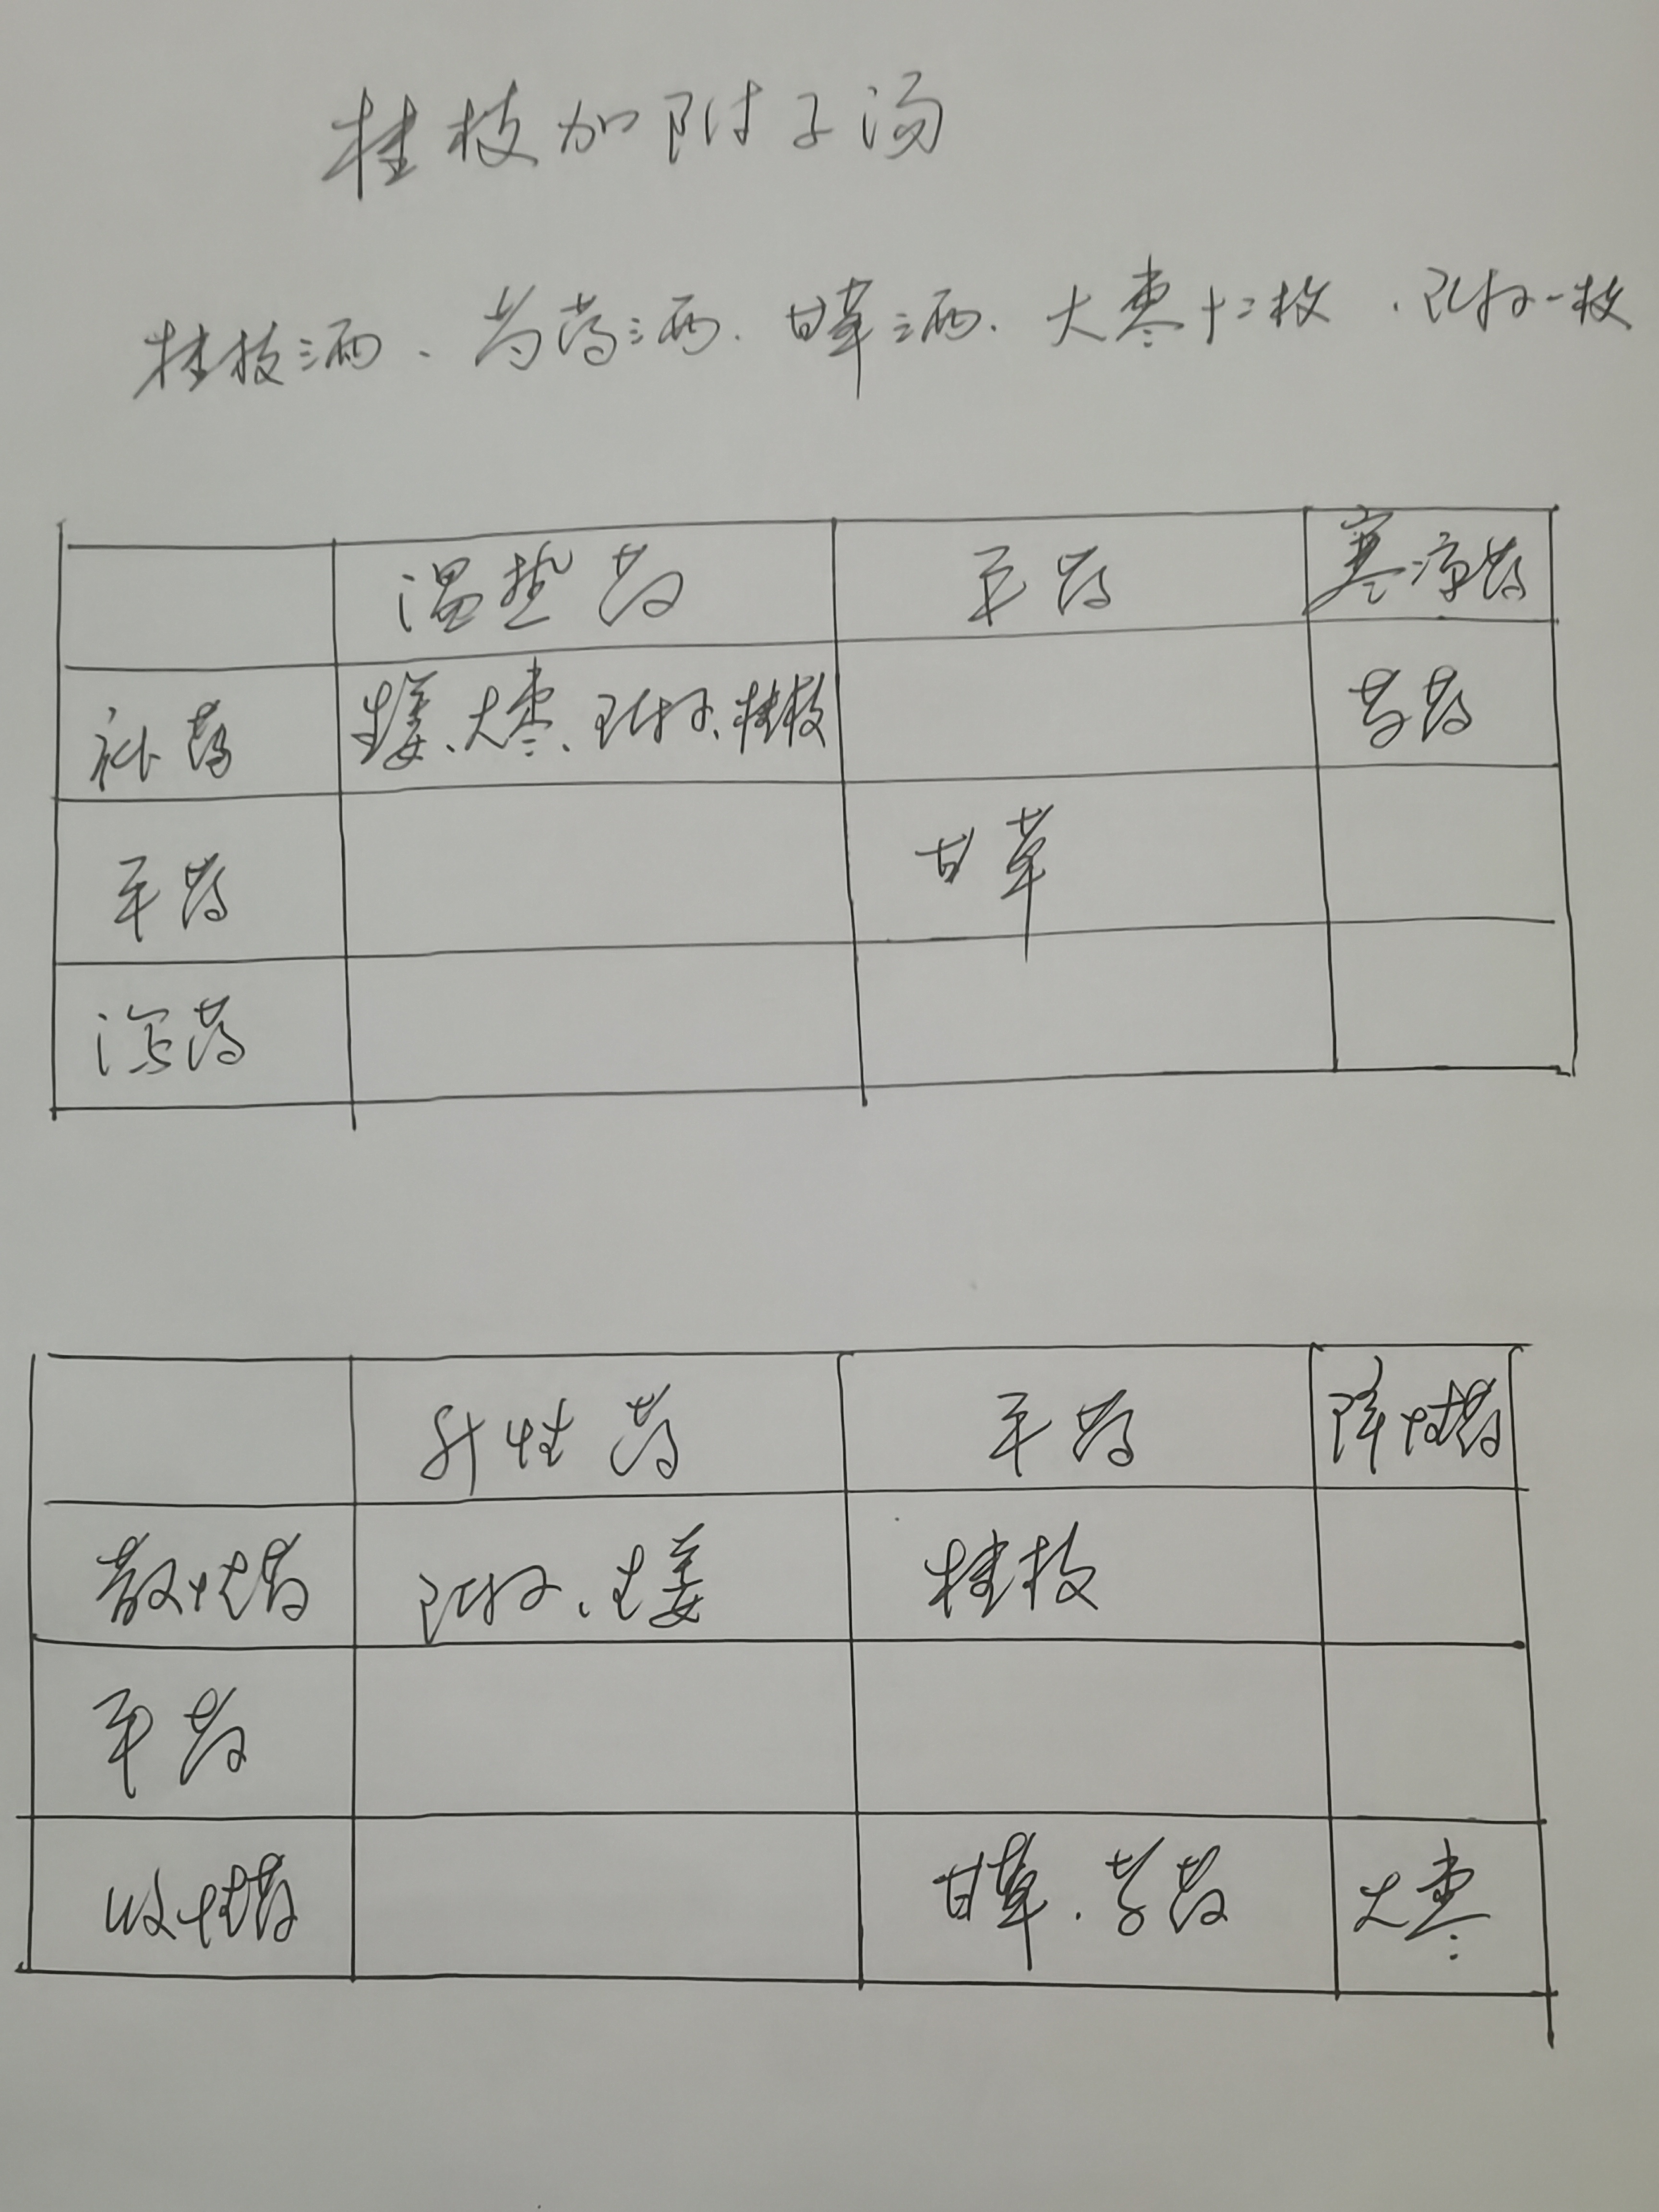 桂枝加附子汤
桂枝三两、芍药三两、甘草三两、大枣十二枚、附子一枚
温热药 平药 寒凉药
补药 生姜、大枣、附子、桂枝 芍药
平药 甘草
泻药
升性药 平药 降性药
散性药 附子、生姜 桂枝
平药
收性药 甘草、芍药 大枣